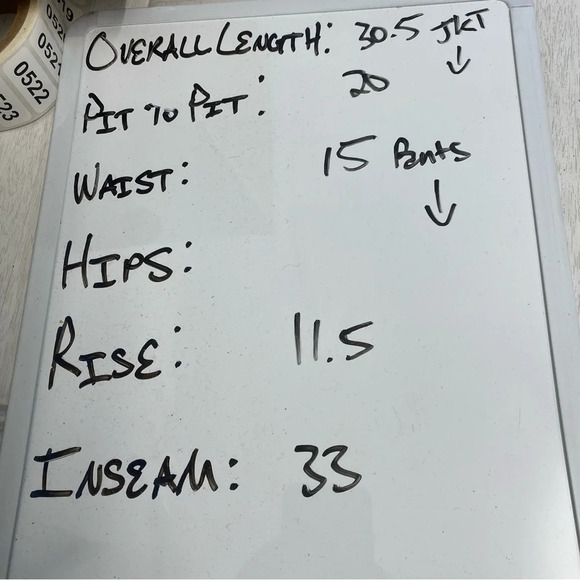 OVERALL LENGTH: 30.5 JKT ↓
PIT TO PIT: 20
WAIST: 15 Pants ↓
HIPS:
RISE: 11.5
INSEAM: 33
0522